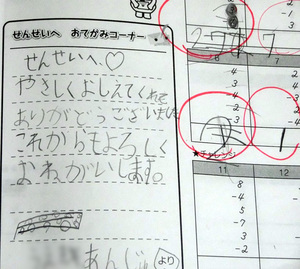 せんせいへ おてがみコーナー
せんせいへ♡
やさしくおしえてくれて
ありがとうございました
これからもよろしく
おねがいします。
あんじゅより
-1
3
277
7
6
7
4
3
-4
-2
-3
4
3
-2
1
★チャレンジ
11
12
8
-4
5
-7
3
-2
4
-
-
3